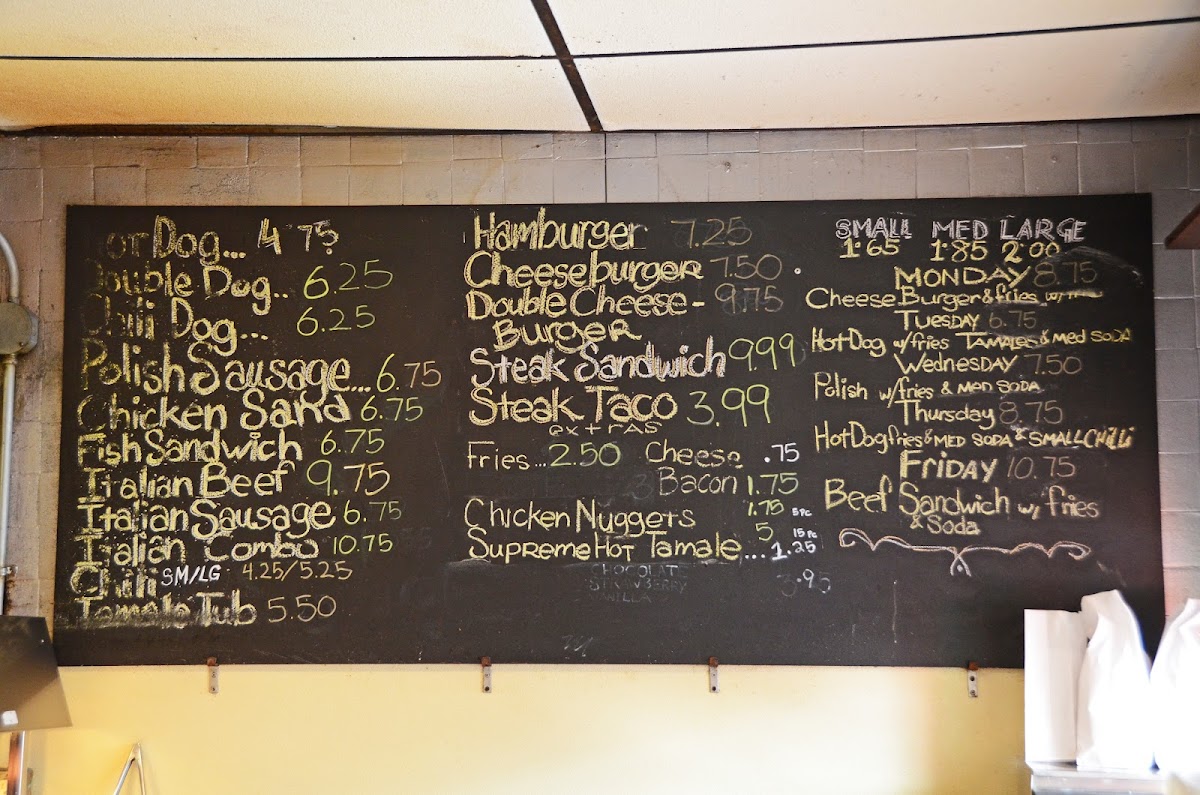 Hot Dog... 4 75
Double Dog.. 6.25
Chili Dog... 6.25
Polish Sausage... 6.75
Chicken Sand 6.75
Fish Sandwich 6.75
Italian Beef 9.75
Italian Sausage 6.75
Italian Combo 10.75
Chili SM/LG 4.25/5.25
Tamale Tub 5.50
Hamburger 7.25
Cheeseburger 7.50
Double Cheese- 9.75
Burger
Steak Sandwich 9.99
Steak Taco 3.99
extras
Fries... 2.50 Cheese .75
Bacon 1.75
Chicken Nuggets 1.75 5 PC
5 15 PC
Supreme Hot Tamale... 1.25
CHOCOLAT
STRAWBERRY 3.95
SMALL MED LARGE
1.65 1.85 2.00
MONDAY 8.75
Cheese Burger & fries w/
Tuesday 6.75
Hot Dog w/fries Tamales & med soda
Wednesday 7.50
Polish w/fries & med soda
Thursday 8.75
Hot Dog fries & med soda & small chili
Friday 10.75
Beef Sandwich w/ fries
& Soda